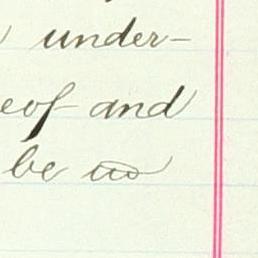 under-
eof and
be